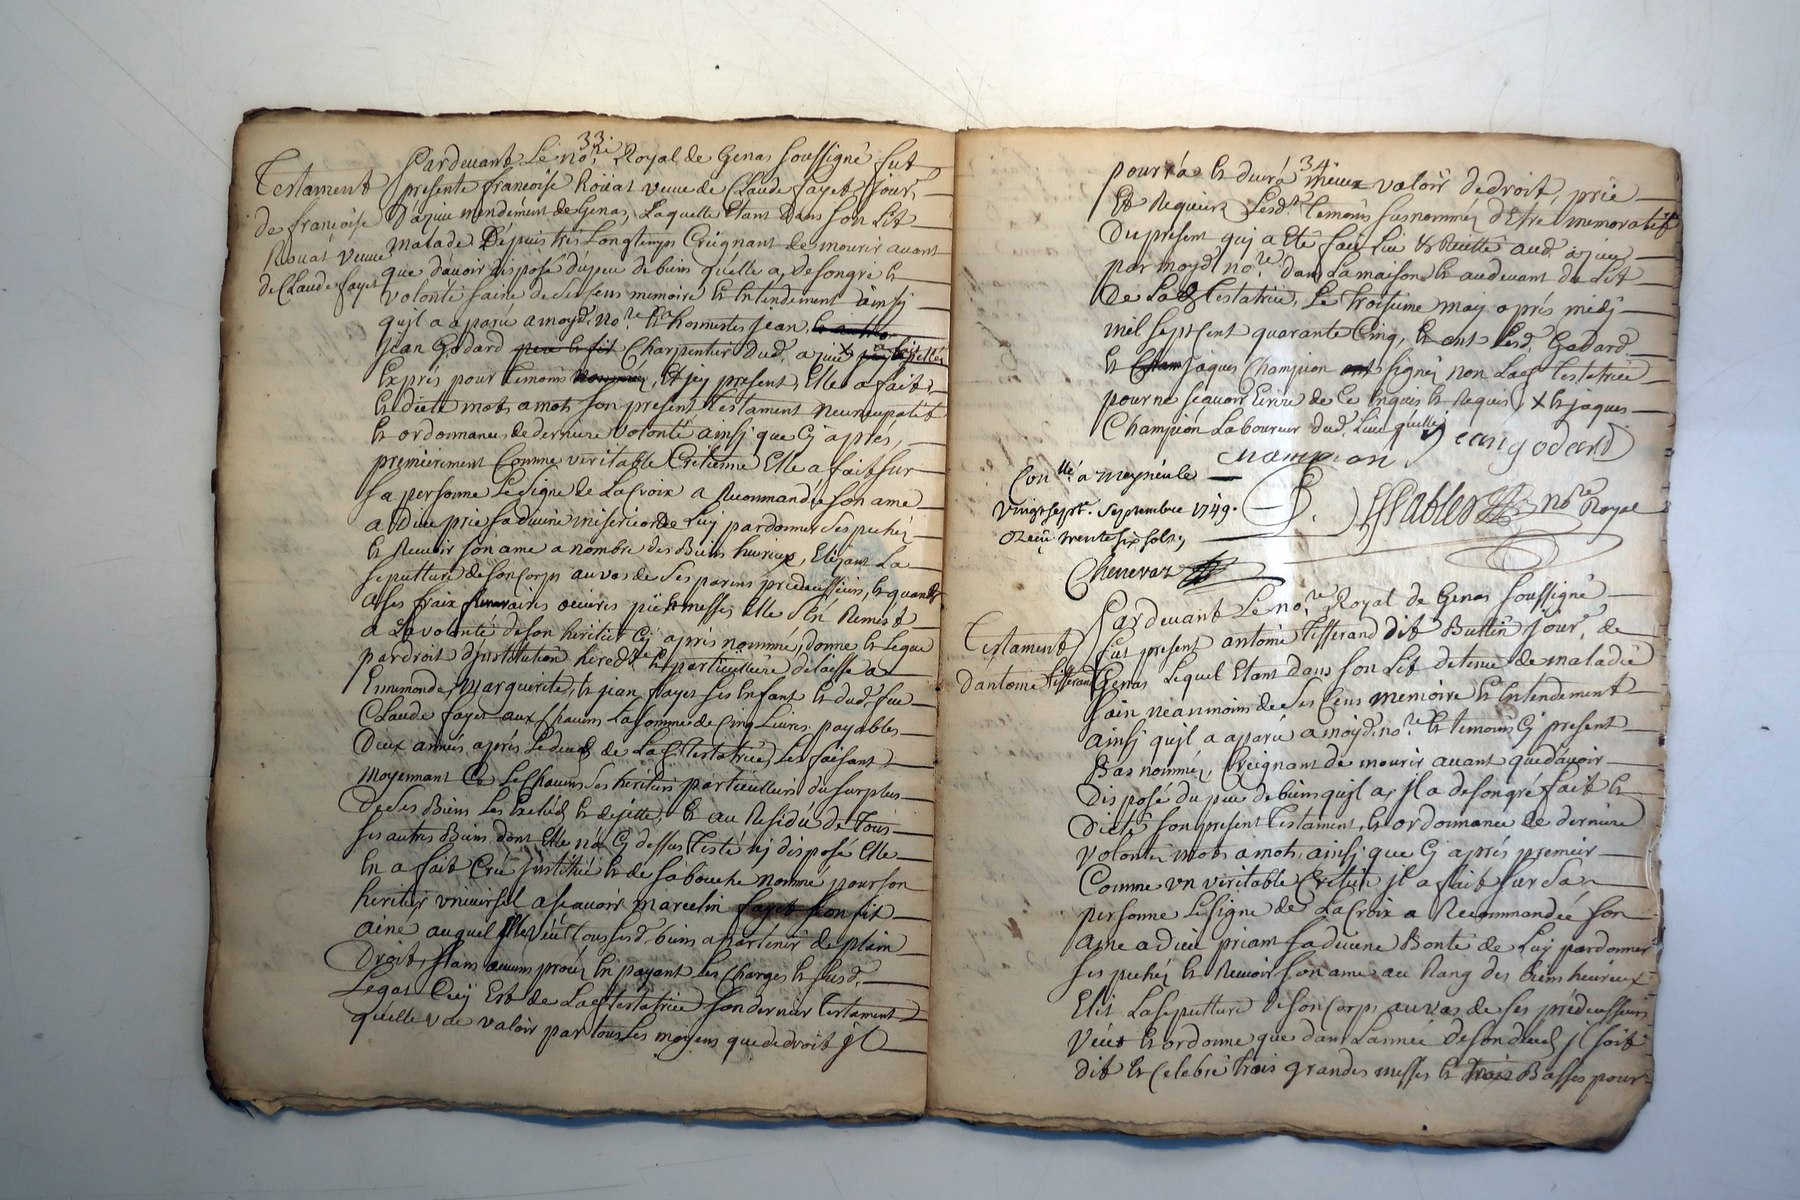 33
Testament
de françoise
Roüat veuve
de Claude fayet
Pardevant Le no.re Royal de Genas Soussigné fut
presente françoise Roüat veuve de Claude fayet, jour.
D'ajeu mendement de Genas, Laquelle Etant dans son Lit
malade Depuis trés Longtemps Creignant de mourir avant
que d'avoir disposé du peu de biens qu'elle a, de son gré et
volonté saine de ses sens memoire et Entendement ainsy
qu'jl a aparü a moyd. no.re et
jean Godard Charpentier dud. ajeu x
Exprés pour temoins, Et jcy present, Elle a fait
Et dicté mots a mots son present testament
Et ordonnance de derniere volonté ainsj que Cj aprés,
premierement Comme veritable Cretienne Elle a fait sur
sa personne Le signe de La Croix a Recommandée son ame
a Dieu prié sa divine misericorde Luy pardonner ses pechéz
Et Recevoir son ame a nombre des Biens heureux, Elizant La
sepulture de son Corps au vas de ses parens predecesseurs, Et quand
a ses fraix funeraires oeuvres pie Et messes Elle s'En Remést
a La volonté de son heritier Cj aprés nommé, donne Et Legue
par droit d'jnstitution heredit.re Et particulliere delaisse a
Ennemonde, Marguerite, Et jean fayet ses Enfant Et dud. feu
Claude fayet aux Chacuns La somme de Cinq Livres, payables
Deux années aprés Le deced de Lad. testatrice, Les faisant
Moyennant Ce Le Chacuns ses heritiers particulliers du surplus
De ses Biens Les Exclud Et dejette, Et au Residu de Tous
ses autres Biens dont Elle n'a Cj dessus Testé nj disposé Elle
En a fait Créé jnstitué Et de sa bouche nommé pour son
heritier vniversel a sçavoir marcelin fayet son fil
ainé auquel Elle veut tous sesd. biens apartenir de plain
Droit, sans aucuns procéz En payant Les Charges Et susd.
Legat Cecy Est de Lad. testatrice son dernier testament
qu'elle veut valoir par tous Les moyens que de droit jl
34
pourrá Et devrá mieux valoir de droit, prié
Et Requeir Lesd. temoins susnomméz d'Etre memoratif
Du present quj a Eté fait Lu Et Recitté aud. ajeu
par moyd. no.re dans La maison Et au devant du Lit
De Lad. testatrice, Le troisieme may aprés midj
mil sept Cent quarante Cinq, Et ont Lesd. Godard
Et jaques Champion signéz non Lad. testatrice
pour ne sçavoir Ecrire de Ce Enquis Et Requis, x Et jaques
Champion Laboureur dud. Lieu
Champion jean godard
no.re Royal
Con.llé a Meyzieule
vingt sept. Septembre 1749.
trente six sols
Chenevaz
Testament
D'antoine Tifferand
Pardevant Le no.re Royal de Genas soussigné
fut present antoine Tifferand dit Buttin jour. de
Genas Lequel Etant dans son Lit detenu de maladie
sain neanmoins de ses sens memoire Et Entendement
ainsj qu'jl a aparü a moyd. no.re Et temoins Cj present
Bas nomméz, Creignant de mourir avant que d'avoir
Disposé du peu de biens qu'jl a, jl a de son gré fait Et
Dicté son present Testament, Et ordonnance de derniere
volonté mots a mots, ainsj que Cj aprés premier
Comme vn veritable Cretien jl a fait sur sa
personne Le signe de La Croix a Recommandée son
ame a dieu priant sa divine Bonté de Luy pardonner
ses pechéz Et Recevoir son ame au Rang des biens heureux
Elit La sepulture de son Corps au vas de ses predecesseurs
veut Et ordonne que dans L'année de son deced jl soit
dit Et Celebré trois grandes messes Et trois Basses pour